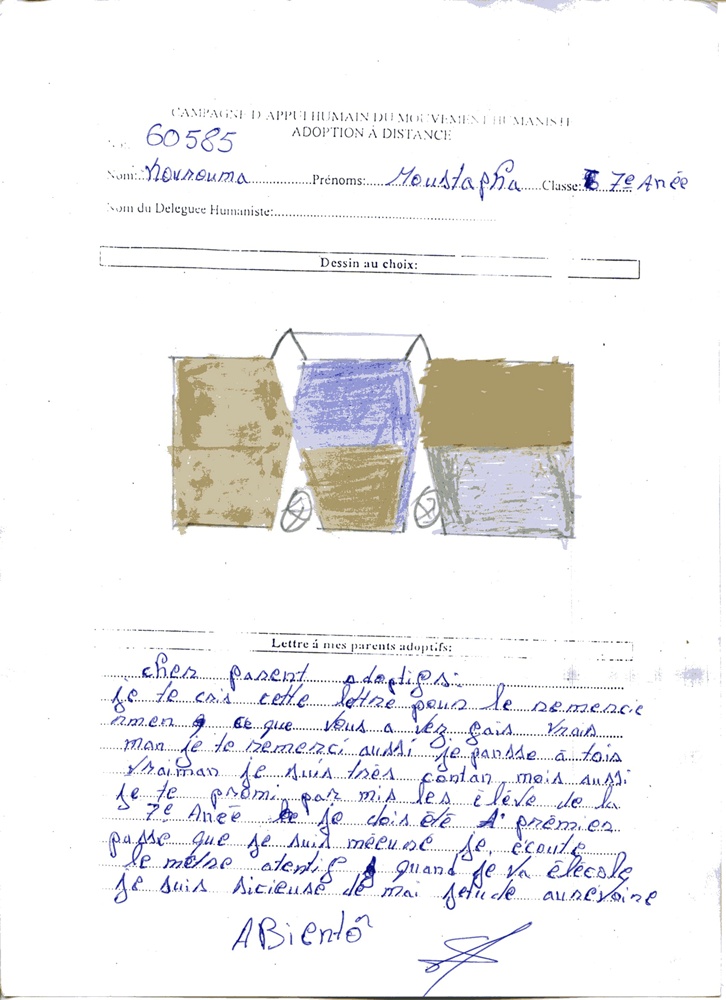 CAMPAGNE D'APPUI HUMAIN DU MOUVEMENT HUMANISTE
ADOPTION À DISTANCE
60585
Nom: Kourouma Prénoms: Moustapha Classe: 7e Anée
Nom du Deleguee Humaniste:
Dessin au choix:
Lettre á mes parents adoptifs:
cher parent adoptifs:
je te cris cette lettre pour le remercie
rmen ce que vous a vez fais vrais
man je te remerci aussi je pansse à tois
vraiman je suis très contan mois aussi
je te promi par mis les élève de la
7e Anée je dois été premier
passe que je suis je écoute
le mètre atentif quand je va élécole
je suis sicieuse de mai jetude aurevoire
ABientô